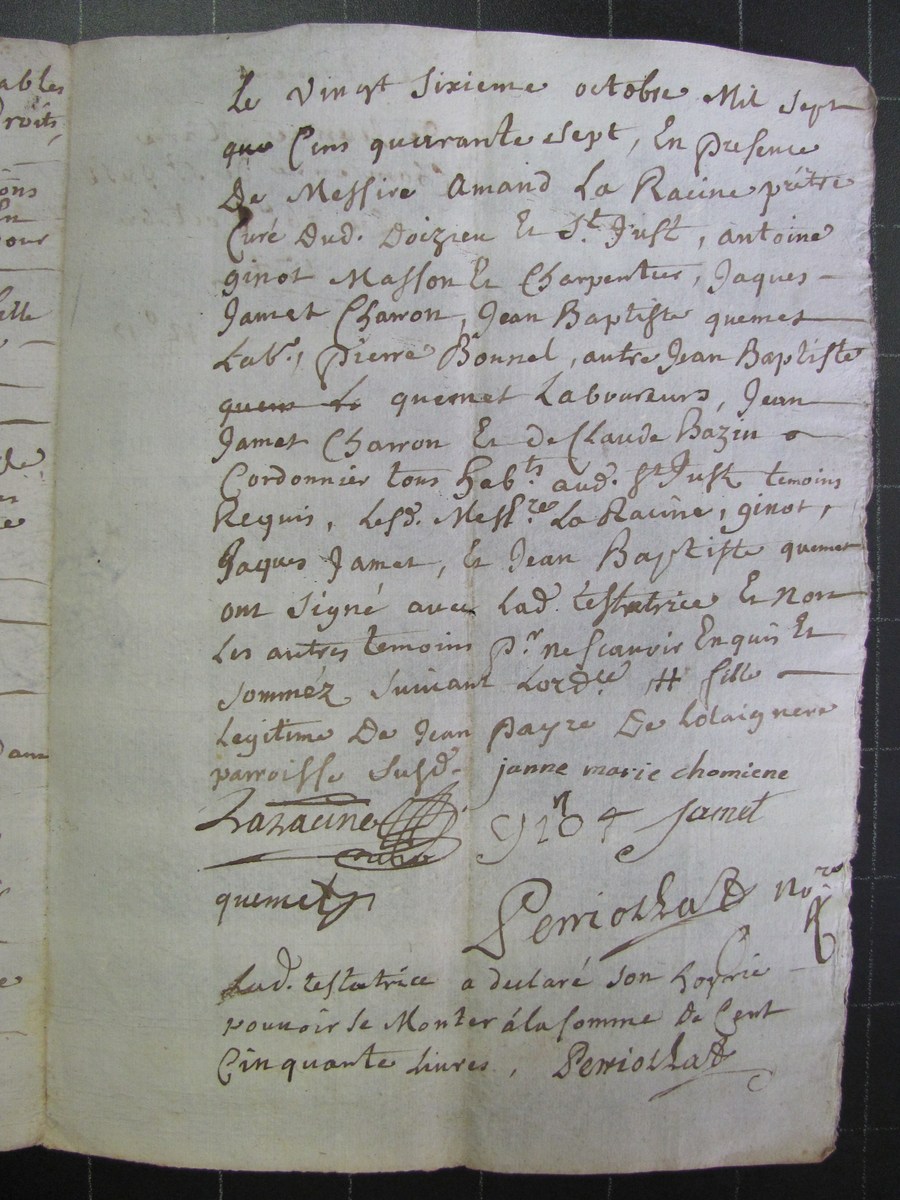 ables
Droits,
ons
En
pour
elle
de
es
Dans
Le Vingt sixieme octobre Mil sept
que Cens quarante sept, En presence
De Messire Amand La Racine prêtre
Curé Dud. Doizieu Et St. Just, antoine
ginot Masson Et Charpentier, Jaques
Jamet Charron, Jean Baptiste quemet
Labr., pierre Bonnel, autre Jean Baptiste
quem La quemet Laboureurs, Jean
Jamet Charron Et de Claude Bazin
Cordonnier tous habts. aud. St Just temoins
Requis, Lesd. Messre. La Racine, ginot,
Jaques Jamet, Et Jean Baptiste quemet
ont signé avec Lad. testatrice Et non
Les autres temoins pr. ne scavoir Enquis Et
somméz suivant Lordce # fille
Legitime De Jean payre De
parroisse susd. janne marie chomiene
Laracine ginot Jamet
curé
quemet Perriollat Nore.
Lad. testatrice a declaré son
pouvoir se Monter à la somme De Cent
Cinquante Livres, Perriollat